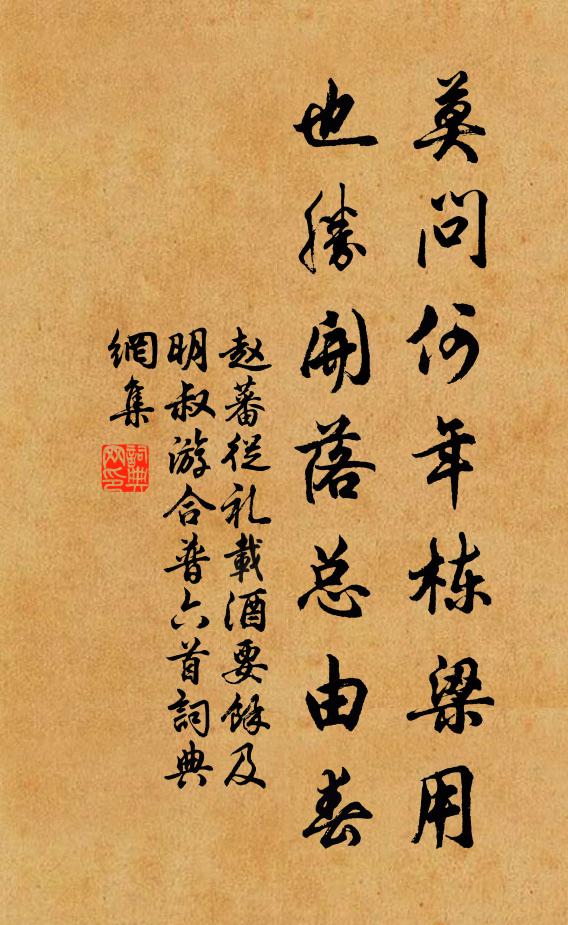 莫问何年栋梁用
也勝開落总由春
赵蕃從礼載酒要餘及
明叔游合普六首詞典
網集
詞典
网印